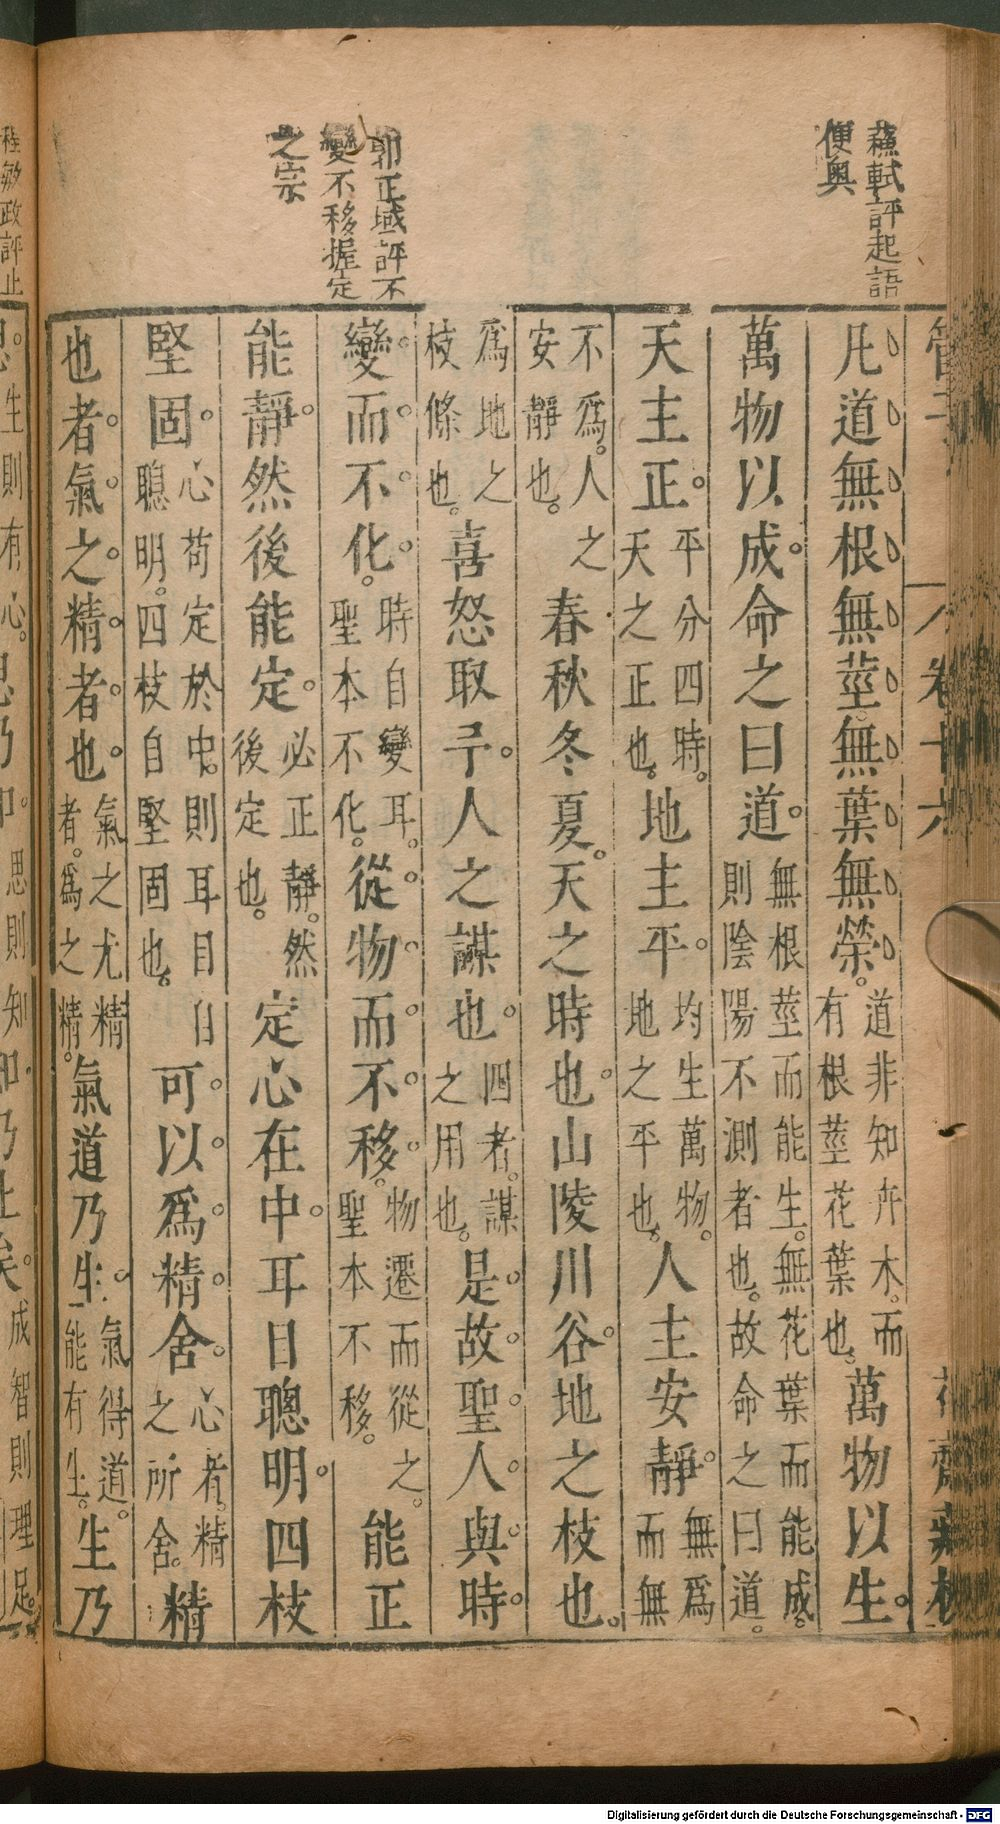 蘇軾評起語
便奧
郭正域評不
變不移握定
之宗
管子 卷十六 花齋藏板
凡道無根無莖無葉無榮。道非知卉木。而有根莖花葉也。萬物以生。
萬物以成。命之曰道。無根莖而能生。無花葉而能成。則陰陽不測者也。故命之曰道。
天主正。平分四時。天之正也。地主平。均生萬物。地之平也。人主安靜。無爲而無
不爲。人之安靜也。春秋冬夏。天之時也。山陵川谷。地之枝也。
爲地之枝條也。喜怒取予。人之謀也。四者。謀之用也。是故聖人與時
變而不化。時自變耳。聖本不化。從物而不移。物遷而從之。聖本不移。能正
能靜。然後能定。必正靜。然後定也。定心在中。耳目聰明。四枝
堅固。心苟定於中。則耳目自聰明。四枝自堅固也。可以爲精舍。心者。精之所舍。精
也者。氣之精者也。氣之尤精者。爲之精。氣道乃生。氣得道。能有生。生乃
程敏政評止
思。生則有心。思乃知。思則知知乃止矣。成智則理足。
Digitalisierung gefördert durch die Deutsche Forschungsgemeinschaft - DFG